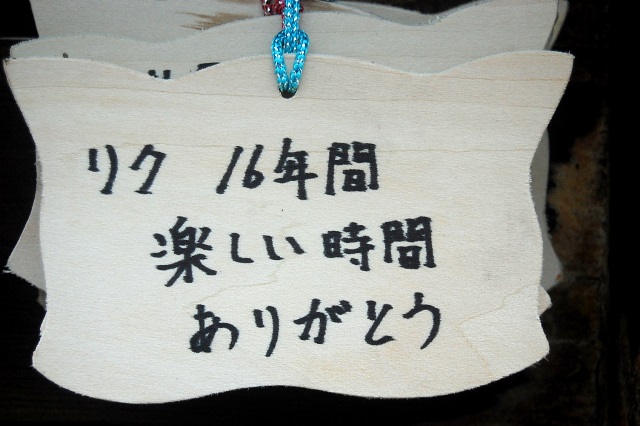 リク 16年間
楽しい時間
ありがとう